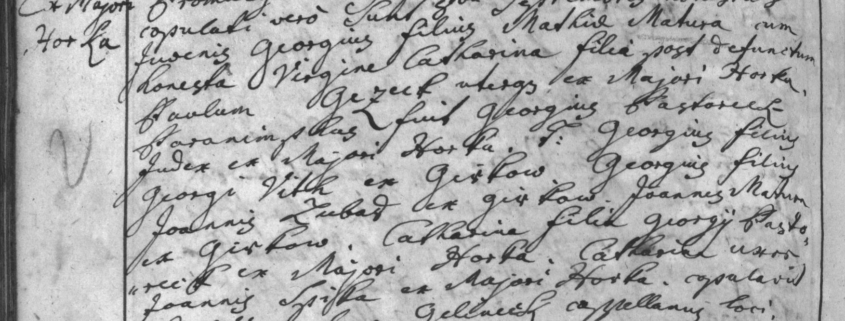 Ex Majori
Horka
copulati vero Sunt
Juvenis Georgius filius Mathiæ Matura cum
honesta Virgine Catharina filia post defunctum
Paulum Gezek uterq ex Majori Horka.
Paranimphus fuit Georgius Pastoreck
Judex ex Majori Horka. T: Georgius filius
Georgi Vith ex Girkow Georgius filius
Joannis Zubad ex Girkow. Joannes Matura
ex Girkow. Catharina filia Georgij Pasto-
reck ex Majori Horka. Catharina uxor
Joannis Spiska ex Majori Horka. copulavit
Gelineck cappellanus loci.